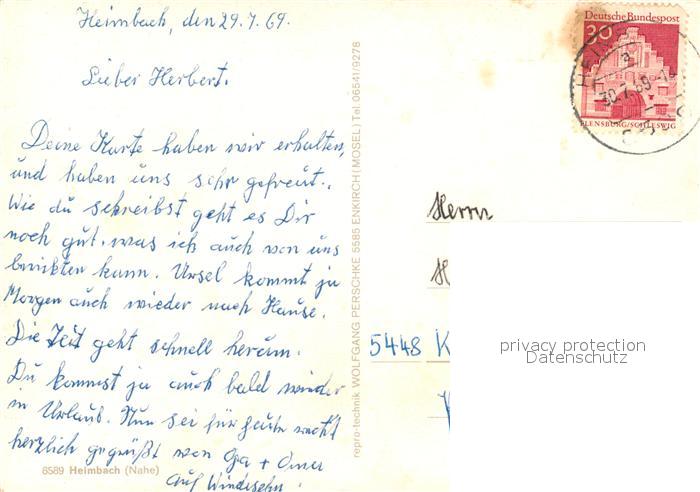 Heimbach, den 29.7.69.
Lieber Herbert.
Deine Karte haben wir erhalten,
und haben uns sehr gefreut.
Wie du schreibst geht es Dir
noch gut, was ich auch von uns
berichten kann. Ursel kommt ja
Morgen auch wieder nach Hause.
Die Zeit geht schnell herum.
Du kommst ja auch bald wieder
in Urlaub. Nun sei für heute recht
herzlich gegrüßt von Opa + Oma
Auf Wiedersehn!
8589 Heimbach (Nahe)
repro-technik WOLFGANG PERSCHKE 5585 ENKIRCH (MOSEL) Tel. 06541/9278
Deutsche Bundespost
30
FLENSBURG/SCHLESWIG
a
30.7.69-1
Herrn
H
5448 K
privacy protection
Datenschutz